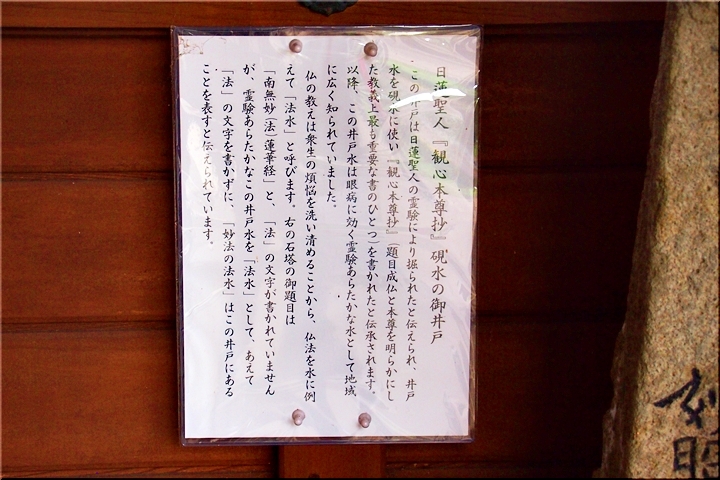 日蓮聖人『観心本尊抄』硯水の御井戸
この井戸は日蓮聖人の霊験により掘られたと伝えられ、井戸
水を硯水に使い『観心本尊抄』（題目成仏と本尊を明らかにし
た教義上最も重要な書のひとつ）を書かれたと伝承されます。
以降、この井戸水は眼病に効く霊験あらたかな水として地域
に広く知られていました。
仏の教えは衆生の煩悩を洗い清めることから、仏法を水に例
えて「法水」と呼びます。右の石塔の御題目は
「南無妙（法）蓮華経」と、「法」の文字が書かれていません
が、霊験あらたかなこの井戸水を「法水」として、あえて
「法」の文字を書かずに、「妙法の法水」はこの井戸にある
ことを表すと伝えられています。